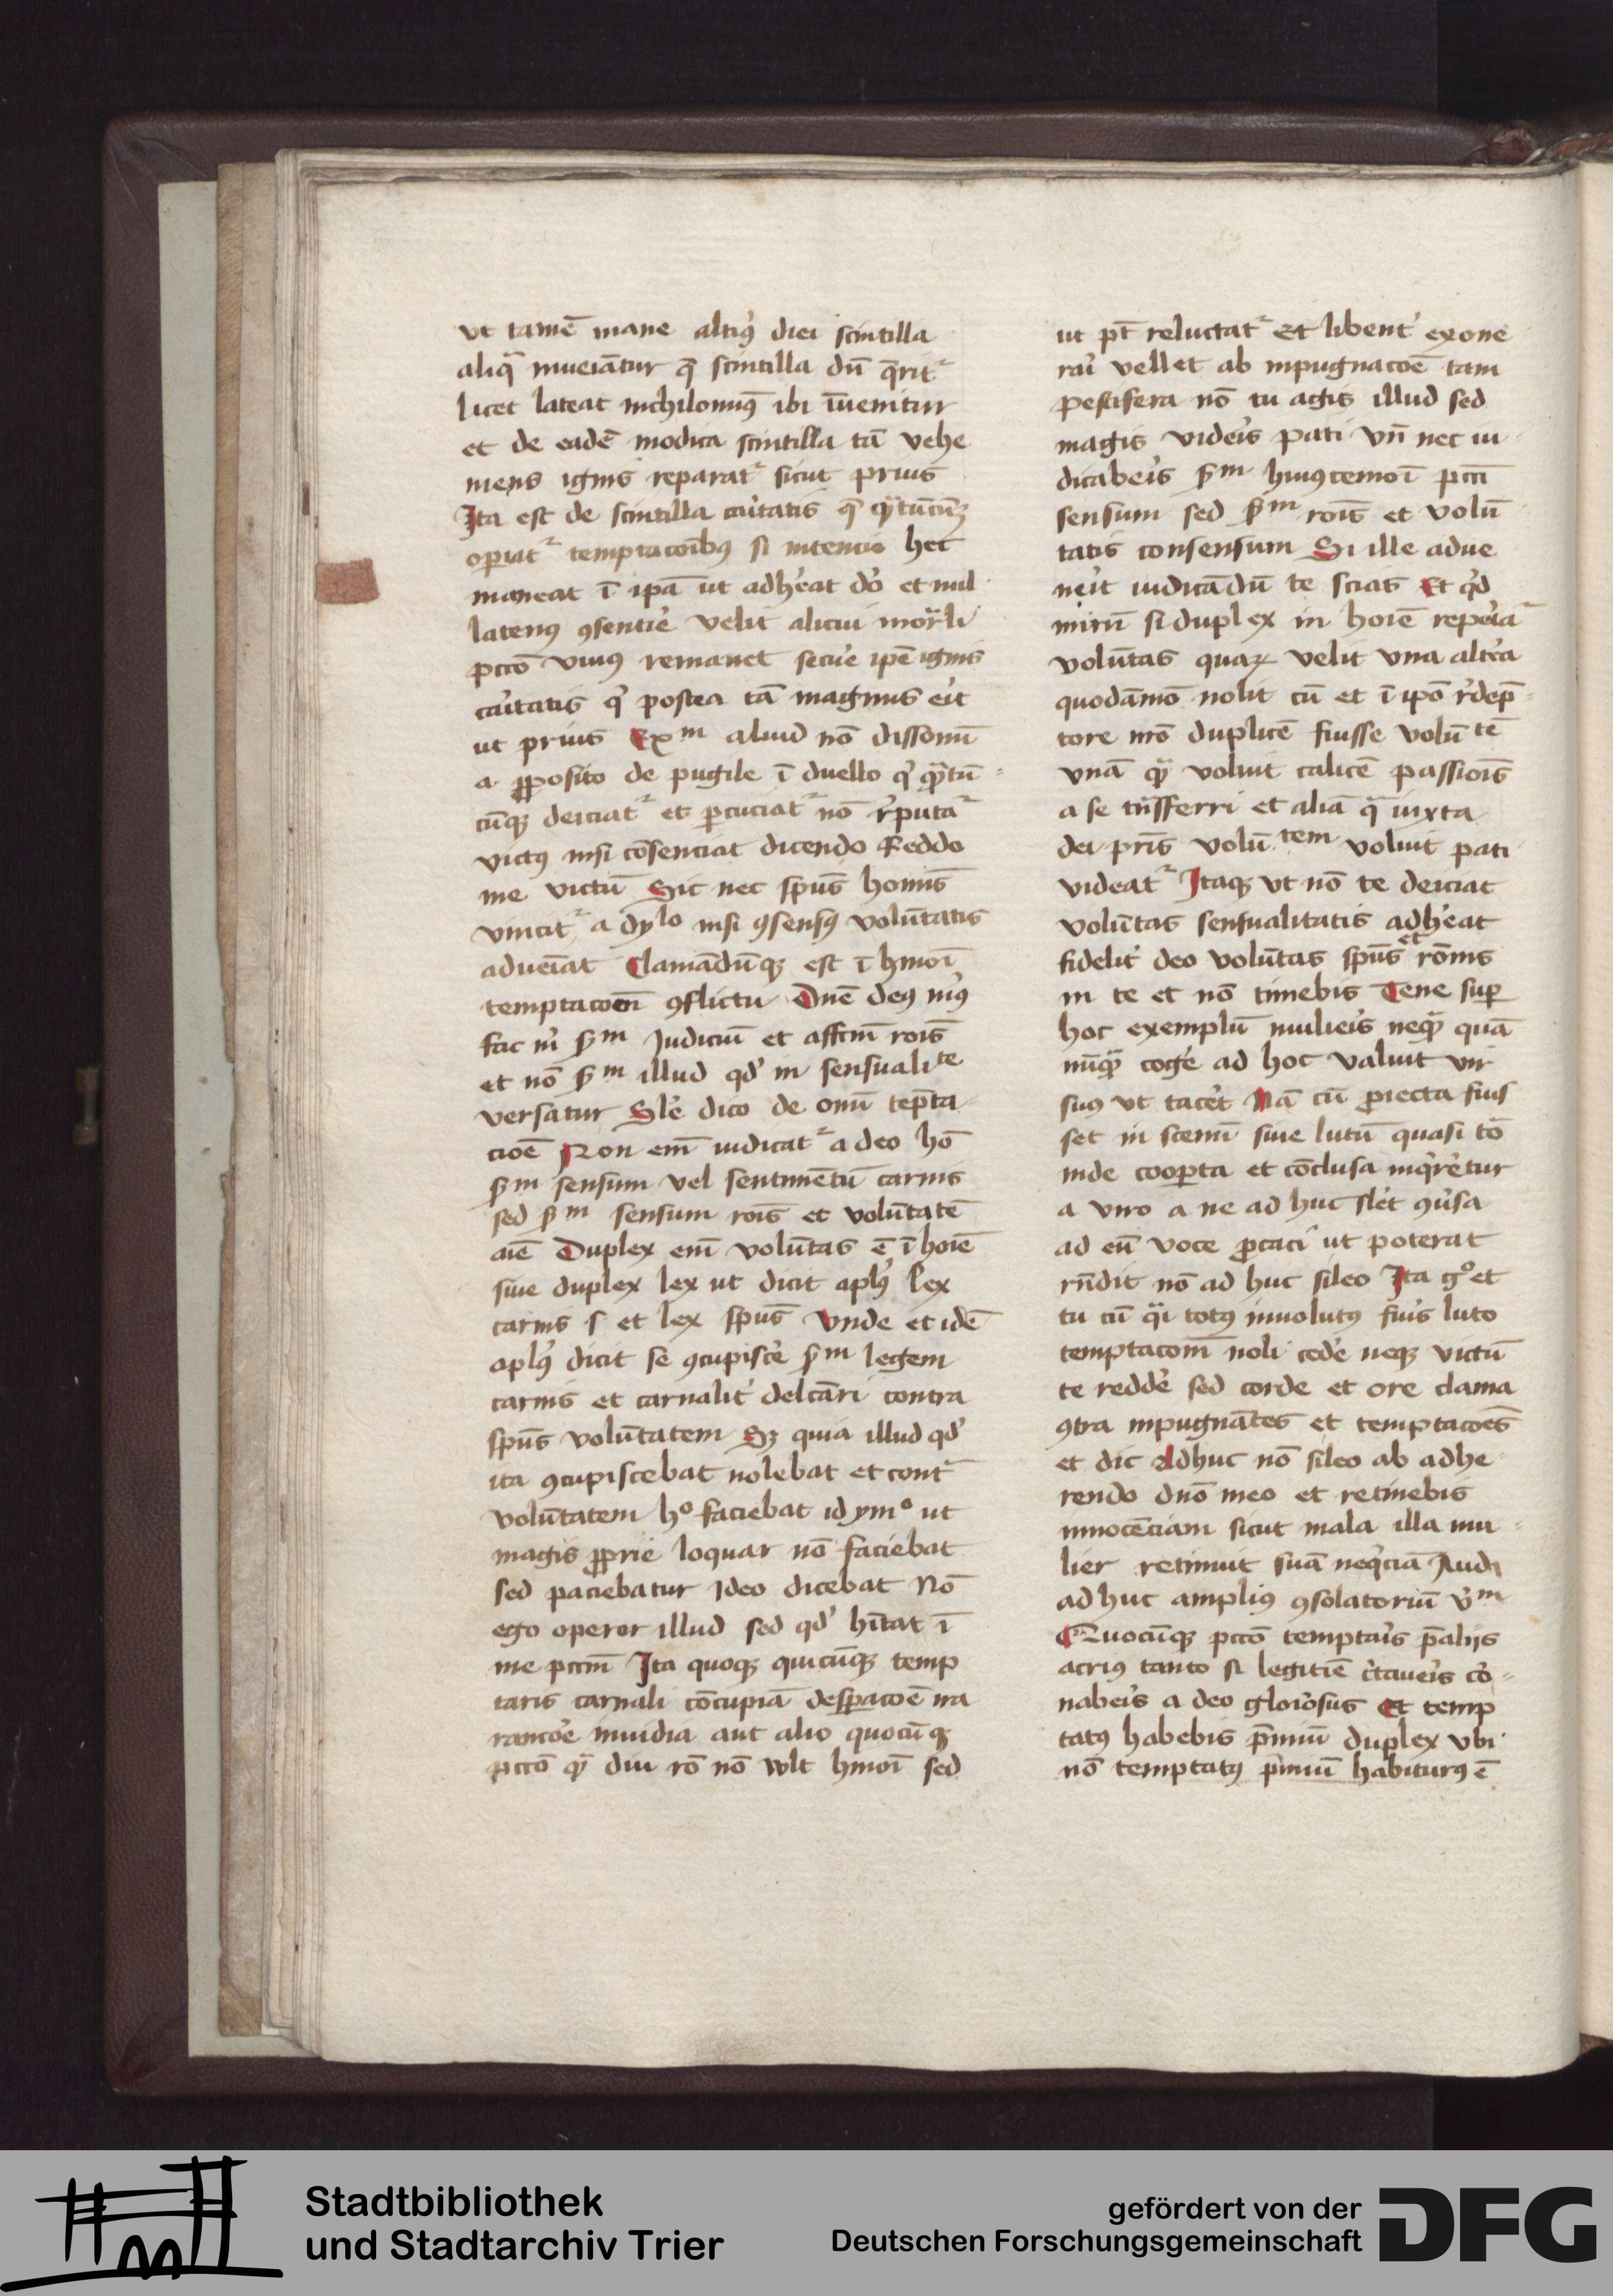 vt tamē mane altiꝰ diei scintilla
aliq̄ inueiātur q̄ scintilla dū q̄rit᷑
licet lateat nichilominꝰ ibi īuenitur
et de eadē modica scintilla tā vehe
mens ignis reparat᷑ sicut prius
Ita est de scintilla caritatis q̄ qͣtūcūqꝫ
operiat᷑ temptacoibꝰ si intencio hec
maneat ī ip̄a ut adhereat do et nul
latenꝰ ꝯsentire velit alicui mortali
pcco viuꝰ remanet secure ip̄e ignis
caritatis qͥ postea tā magnus erit
ut prius Exᵐ aliud nō dissonū
a ꝓposito de pugile ī duello qͥ qͣtū
cūqꝫ deiciat᷑ et percuciat᷑ nō reputat᷑
victꝰ nisi cōsenciat dicendo Reddo
me victū Sic nec spūs homīs
vincit᷑ a dyˡᵒ nisi ꝯsensꝰ volūtatis
adueīat Clamādūqꝫ est ī hmōi
temptacoem ꝯflictu Dn̄e deꝰ mꝰ
fac m̄ scᵐ Judiciū et affctm̄ rōis
et nō scᵐ illud qd' in sensualiᵗᵉ
versatur Sile dico de omī tēpta
cioē Non em̄ iudicat᷑ a deo hō
scᵐ sensum vel sentimētū carnis
sed scᵐ sensum rōis et volūtatē
aīe Duplex em̄ volūtas ē ī hoīe
siue duplex lex ut dicit aplꝰ lex
carnis s et lex spūs Vnde et idē
aplꝰ dicit se ꝯcupiscere scᵐ legem
carnis et carnaliter delcāri contra
spūs volūtatem Sꝫ quia illud qd'
ita ꝯcupiscebat nolebat et cont᷑
volūtatem hº faciebat id ymº ut
magis ꝓprie loquar nō faciebat
sed paciebatur Ideo dicebat Nō
ego operor illud sed qd' hītat ī
me pccm̄ Ita quoqꝫ quicūqꝫ temp
taris carnali cōcupīa desperacoē ira
rancore inuidia aut alio quocūqꝫ
pcco qͣ diu rō nō wlt hmōi sed
ut pt̄ reluctat᷑ Et libenter exone
rari vellet ab inpugnacoē tam
pestifera nō tu agis illud sed
magis videris pati Vn̄ nec iu
dicaberis scᵐ huiꝰcemoī pcci
sensum sed scᵐ rōis et volū
tatis consensum Si ille adue
nerit iudicādū te scias Et qd
mirū si duplex in hoīe reperiat᷑
volūtas quaꝝ velit vna altera
quodāmō nolit cū et ī ip̄o redēp
tore nr̄o duplicē fuisse volūtē
vnā qͣ voluit calicē passiōis
a se trāsferri et aliā qͣ iuxta
dei pris volūtem voluit pati
videat᷑ Itaqꝫ vt nō te deiciat
volūtas sensualitatis adhereat
fideliter deo volūtas spūs et rōnis
in te et nō timebis Tene super
hoc exemplū mulieris neqͣ quā
nūqͣ cogere ad hoc valuit vir
suꝰ vt taceret Nā cū proiecta fuis
set in scenū siue lutū quasi to
inde cooperta et cōclusa inqreretur
a viro a ne ad huc sileret ꝯuersa
ad eū voce procaci ut poterat
rn̄dit nō ad huc sileo Ita gº et
tu cū qͣi totꝰ inuolutꝰ fueris luto
temptacom̄ noli cedere neqꝫ victū
te reddere sed corde et ore clama
ꝯtra inpugnātes et temptacoēs
et dic Adhuc nō sileo ab adhe
rendo dn̄o meo et retinebis
innocēciam sicut mala illa mu
lier retinuit suā neqͥciā Audi
ad huc ampliꝰ ꝯsolatoriū v̄ᵐ
Quocūqꝫ pcco temptaris p̄aliis
acriꝰ tanto si legitīe certaueris co
naberis a deo gloriosus Et temp
tatꝰ habebis p̄miū duplex vbi
nō temptatꝰ p̄miū habiturꝰ ē
Stadtbibliothek
und Stadtarchiv Trier
gefördert von der
Deutschen Forschungsgemeinschaft
DFG